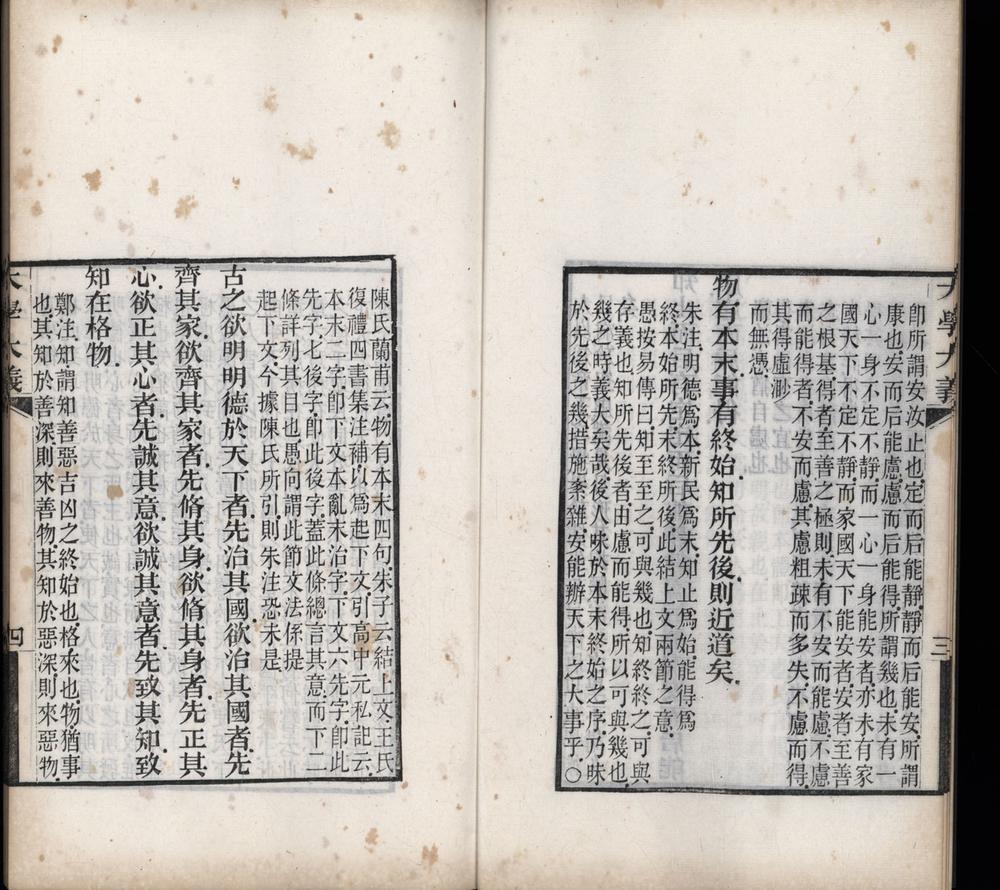 大學大義
三
卽所謂安汝止也定而后能靜靜而后能安所謂
康也安而后能慮慮而后能得所謂幾也未有一
心一身不定不靜而一心一身能安者亦未有家
國天下不定不靜而家國天下能安者安者至善
之根基得者至善之極則未有不安而能慮不慮
而能得者不安而慮其慮粗疎而多失不慮而得
其得虛渺
而無憑
物有本末事有終始知所先後則近道矣
朱注明德爲本新民爲末知止爲始能得爲
終本始所先末終所後此結上文兩節之意
愚按易傳曰知至至之可與幾也知終終之可與
存義也知所先後者由慮而能得所以可與幾也
幾之時義大矣哉後人昧於本末終始之序乃昧
於先後之幾措施紊雜安能辦天下之大事乎○
陳氏蘭甫云物有本末四句朱子云結上文王氏
復禮四書集注補以爲起下文引高中元私記云
本末二字卽下文本亂末治字下文六先字卽此
先字七後字卽此後字蓋此條總言其意而下二
條詳列其目也愚向謂此節文法係提
起下文今據陳氏所引則朱注恐未是
古之欲明明德於天下者先治其國欲治其國者先
齊其家欲齊其家者先脩其身欲脩其身者先正其
心欲正其心者先誠其意欲誠其意者先致其知致
知在格物
鄭注知謂知善惡吉凶之終始也格來也物猶事
也其知於善深則來善物其知於惡深則來惡物
大學大義
四